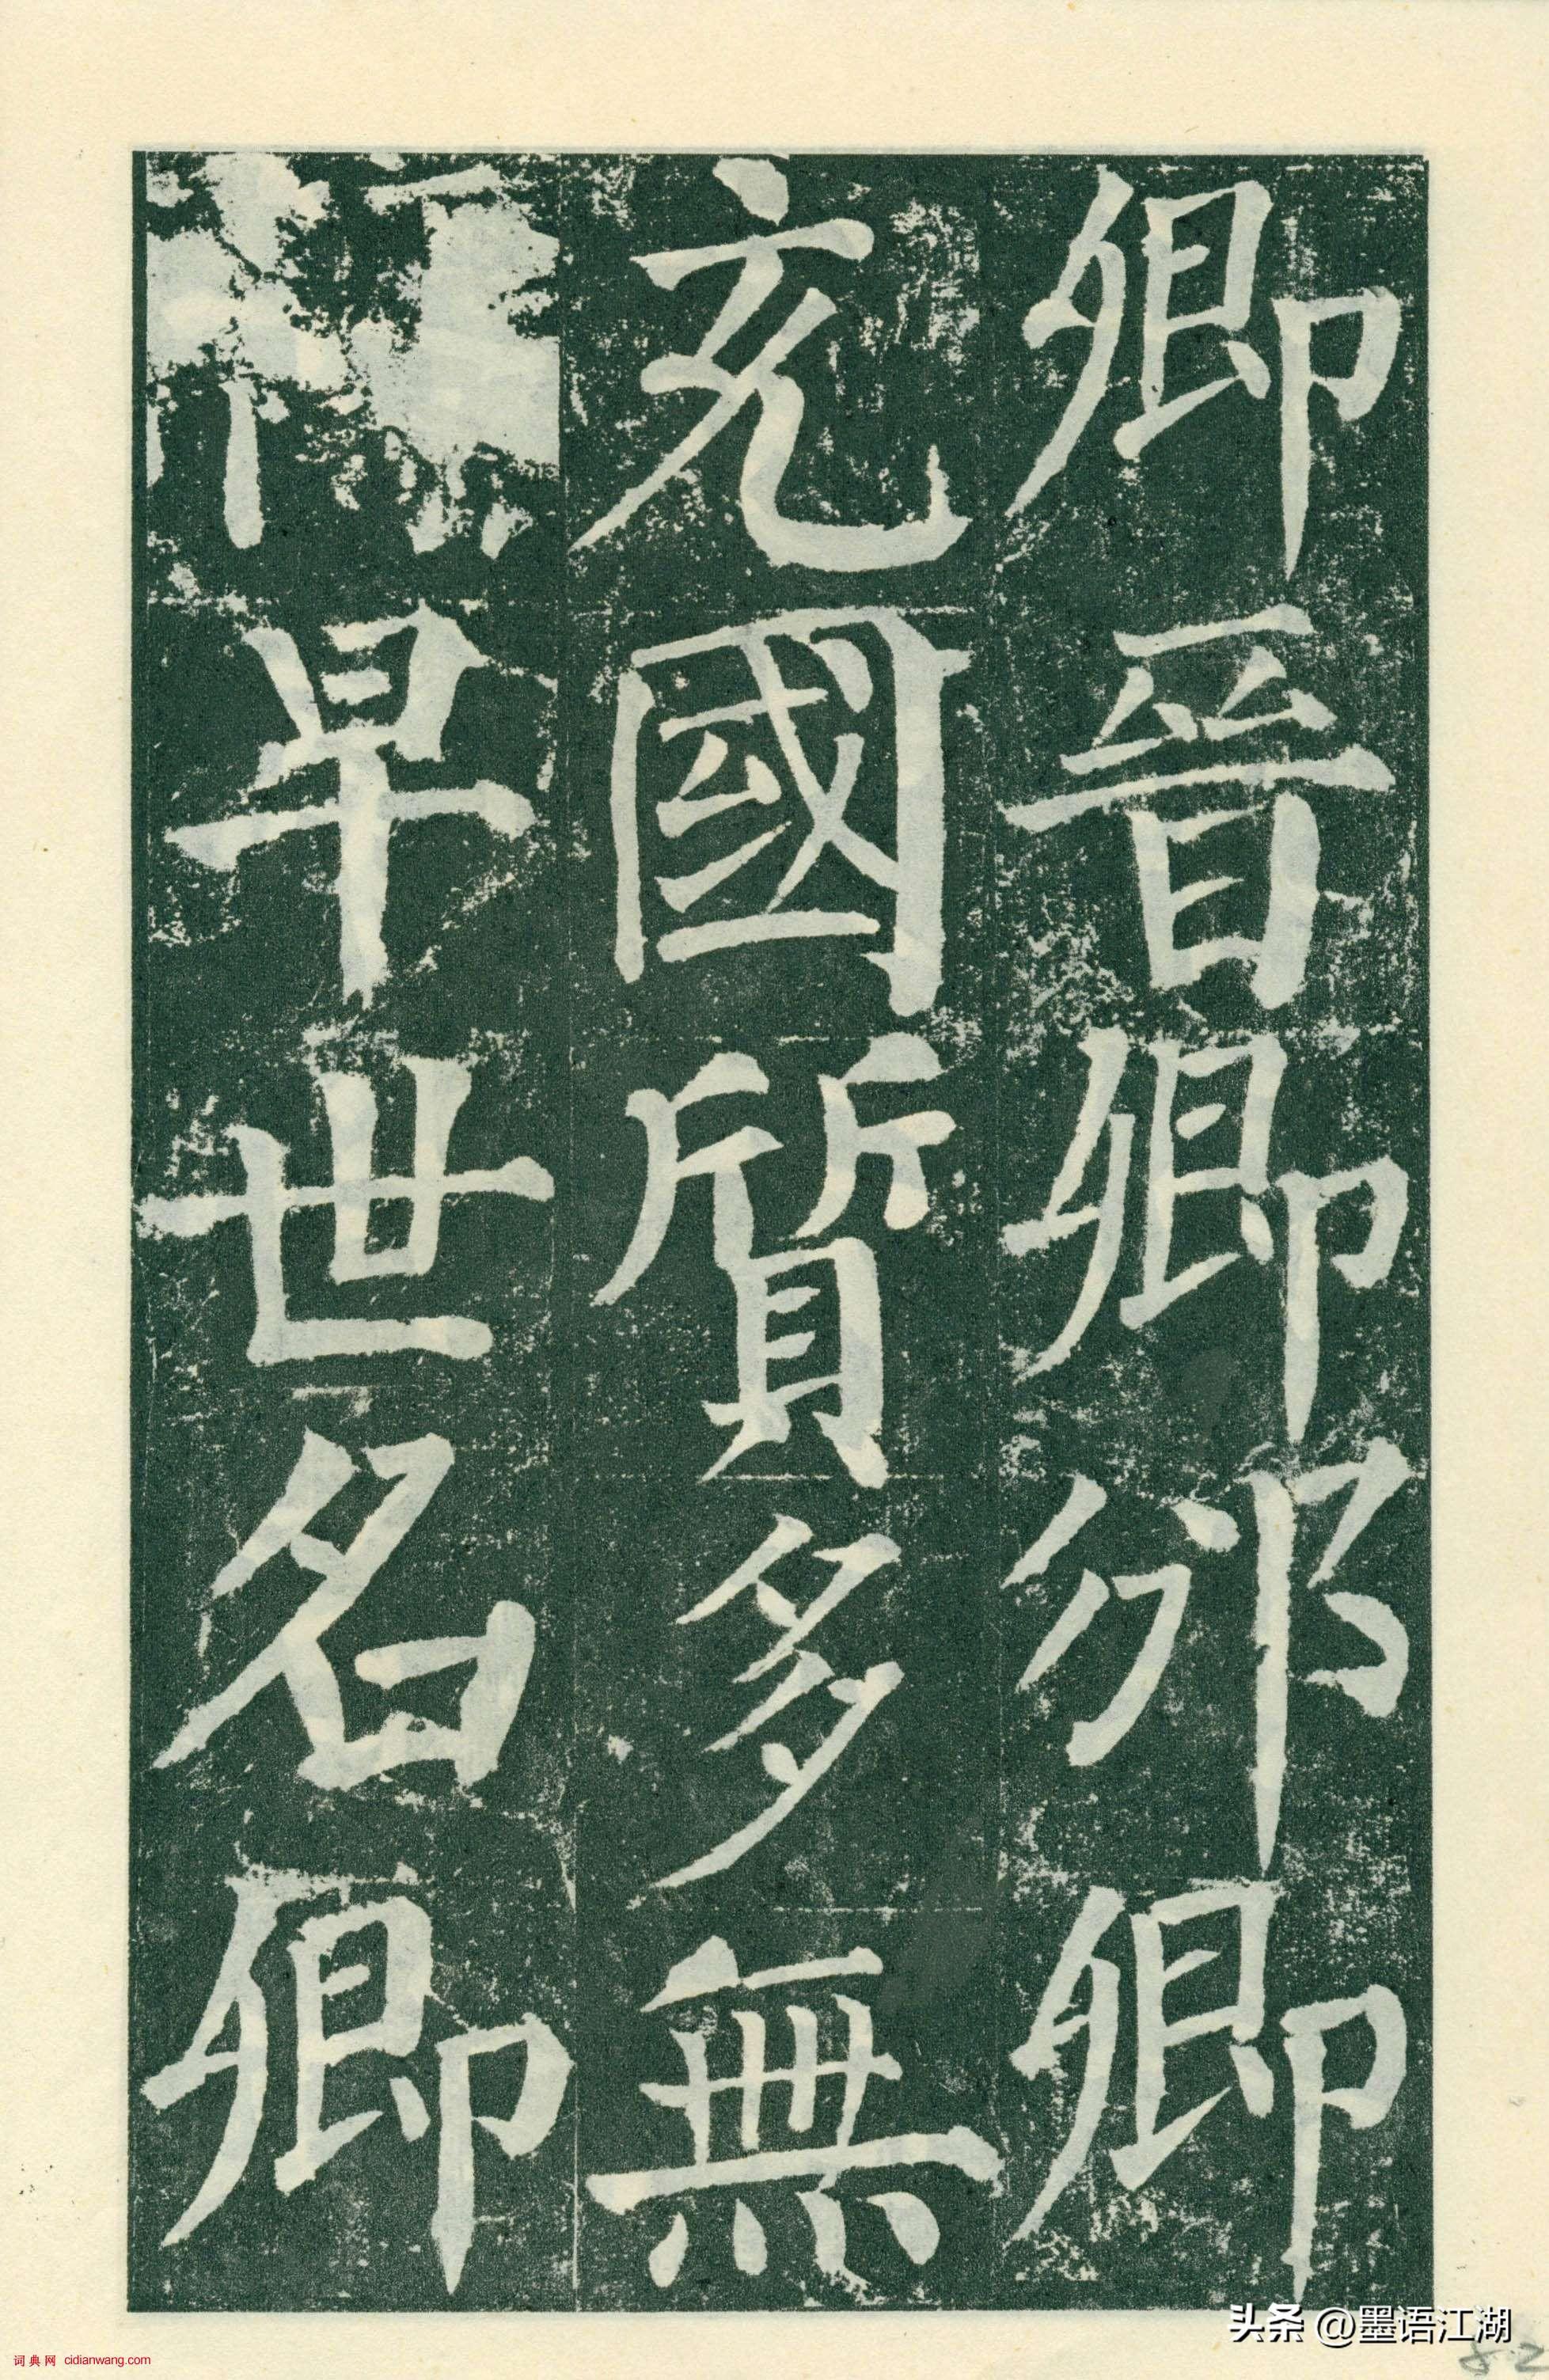 卿晉卿邠卿
充國質多無
早世名卿
头条 @墨语江湖
词典网 cidianwang.com